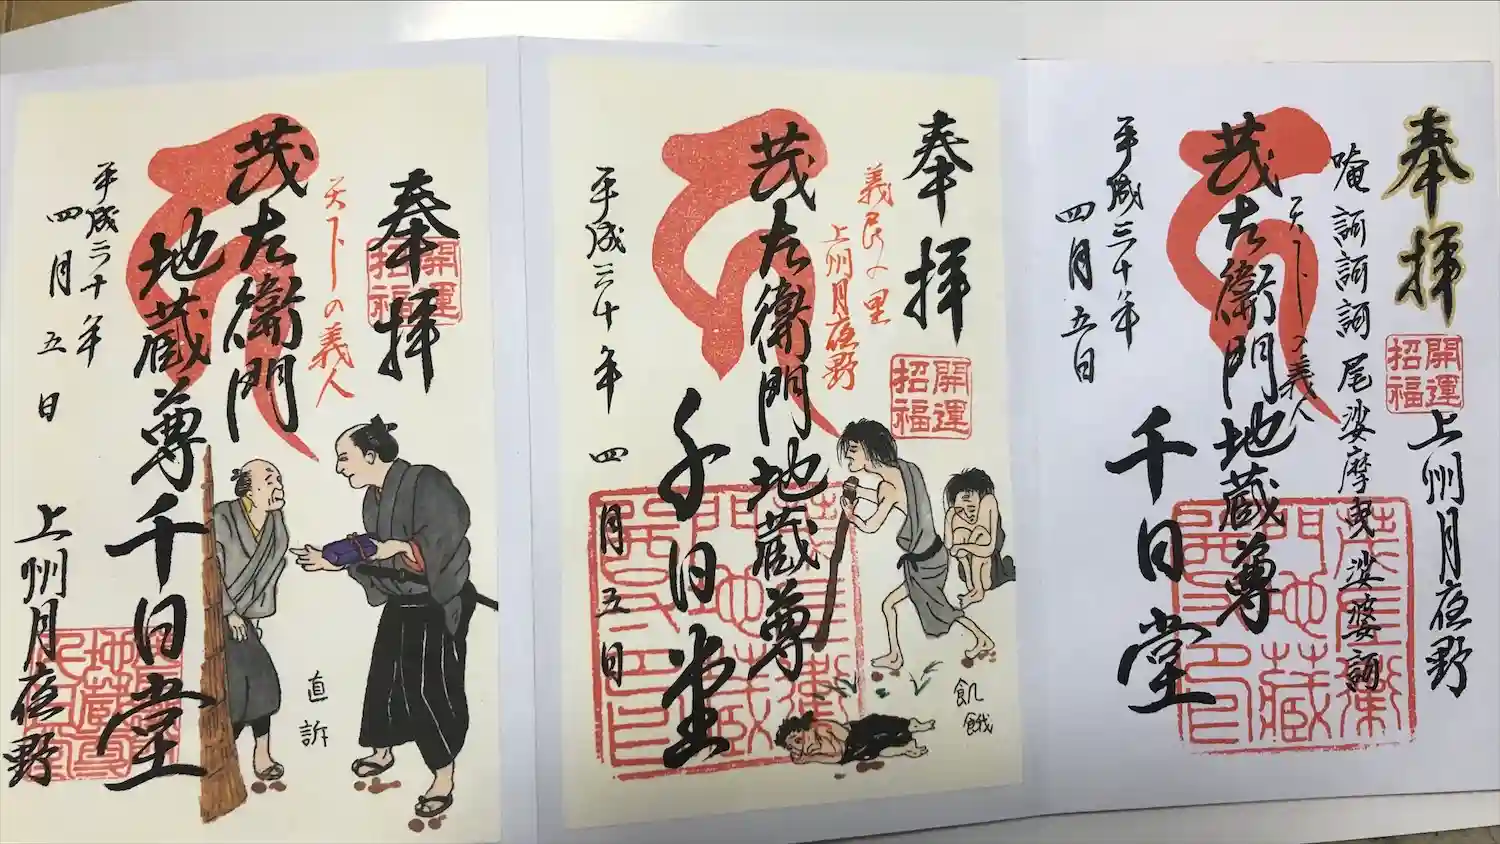 奉拝
開運招福
天下の義人
茂左衛門
地蔵尊千日堂
平成三十年
四月五日
上州月夜野
直訴
奉拝
開運招福
義民の里
上州月夜野
茂左衛門地蔵尊
千日堂
平成三十年四月五日
飢餓
奉拝
開運招福
上州月夜野
唵訶訶訶尾娑摩曳娑婆訶
天下の義人
茂左衛門地蔵尊
千日堂
平成三十年
四月五日